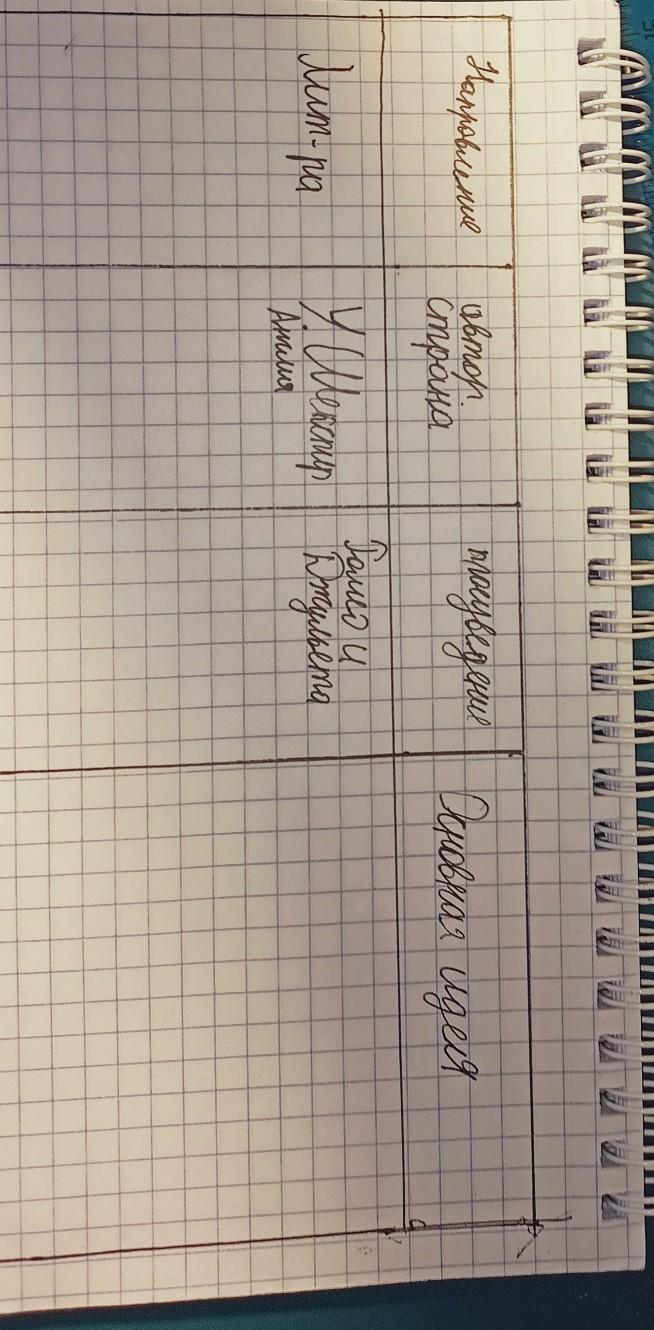 Направление
автор.
страна
произведение
Основная идея
Лит-ра
У. Шекспир
Англия
Ромио и
Джульета